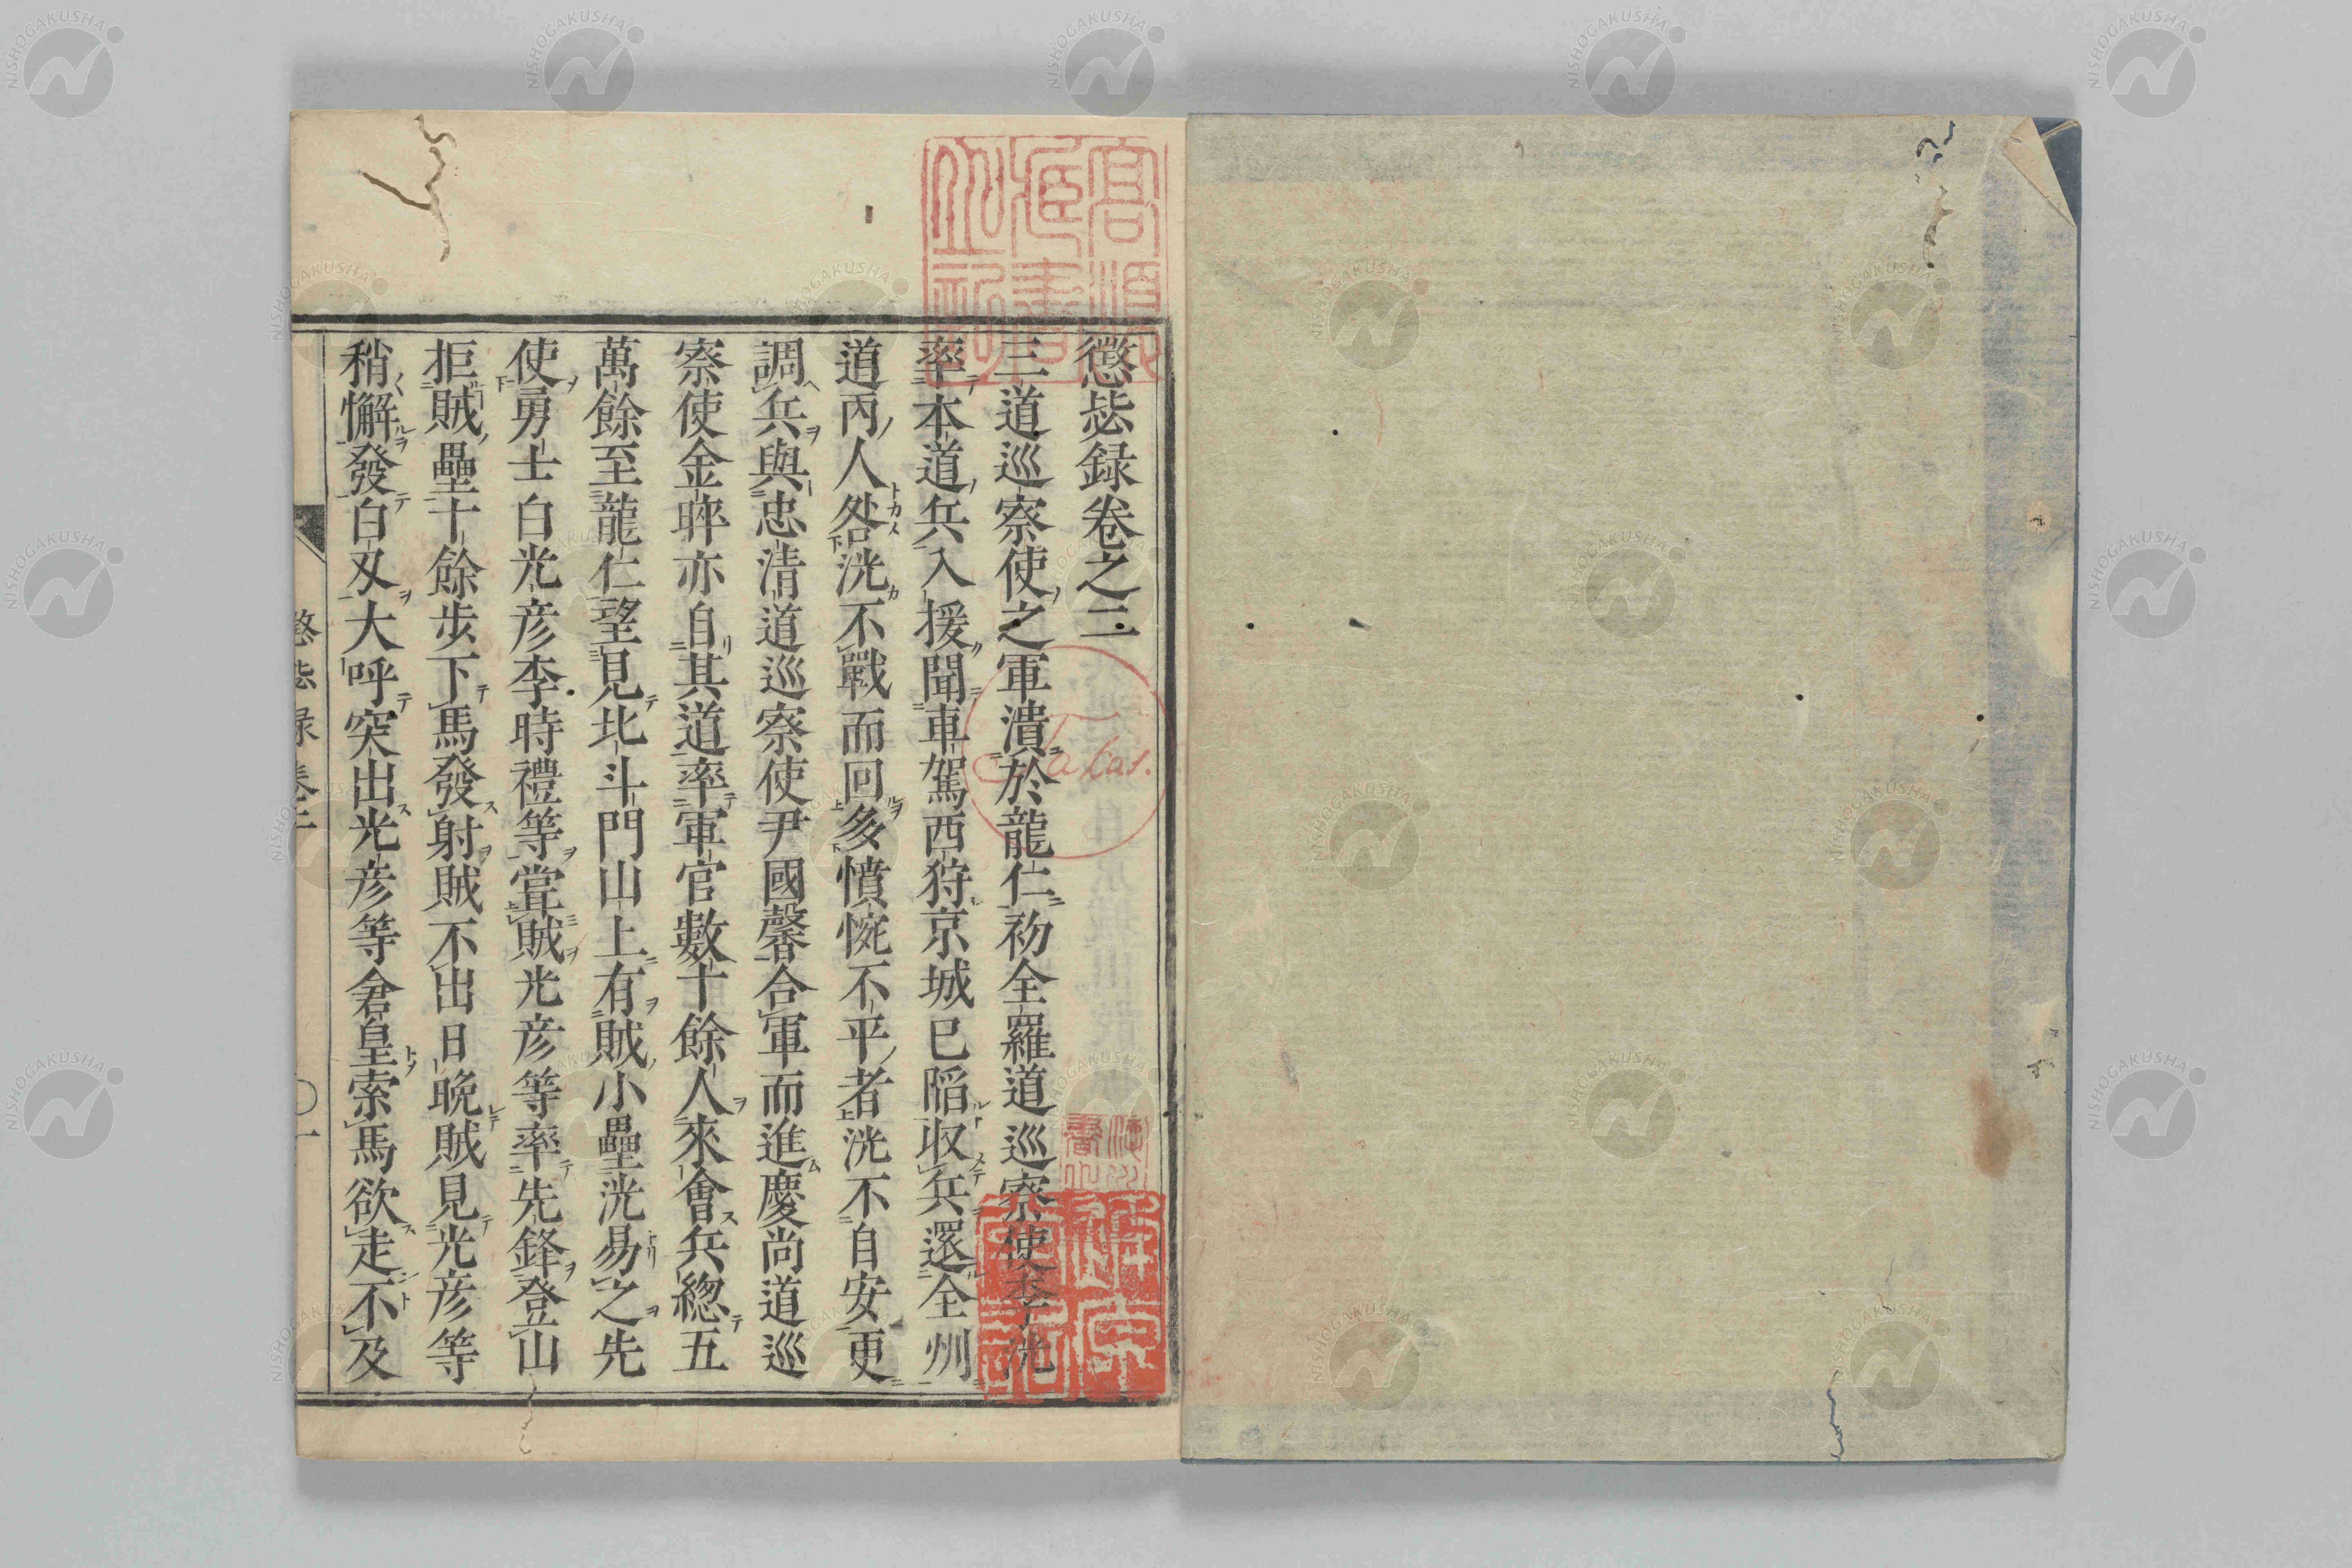 懲毖録卷之二
三道巡察使之軍潰於龍仁初全羅道巡察使李洸
率本道兵入援聞車駕西狩京城已陷收兵還全州
道內人咎洸不戰而回多憤惋不平者洸不自安更
調兵與忠清道巡察使尹國馨合軍而進慶尚道巡
察使金睟亦自其道率軍官數十餘人來會兵總五
萬餘至龍仁望見北斗門山上有賊小壘洸易之先
使勇士白光彦李時禮等嘗賊光彦等率先鋒登山
拒賊壘十餘步下馬發射賊不出日晚賊見光彦等
稍懈發白刄大呼突出光彦等倉皇索馬欲走不及
懲毖录卷二
〇一
高須
藏書
Takas.
NISHOGAKUSHA